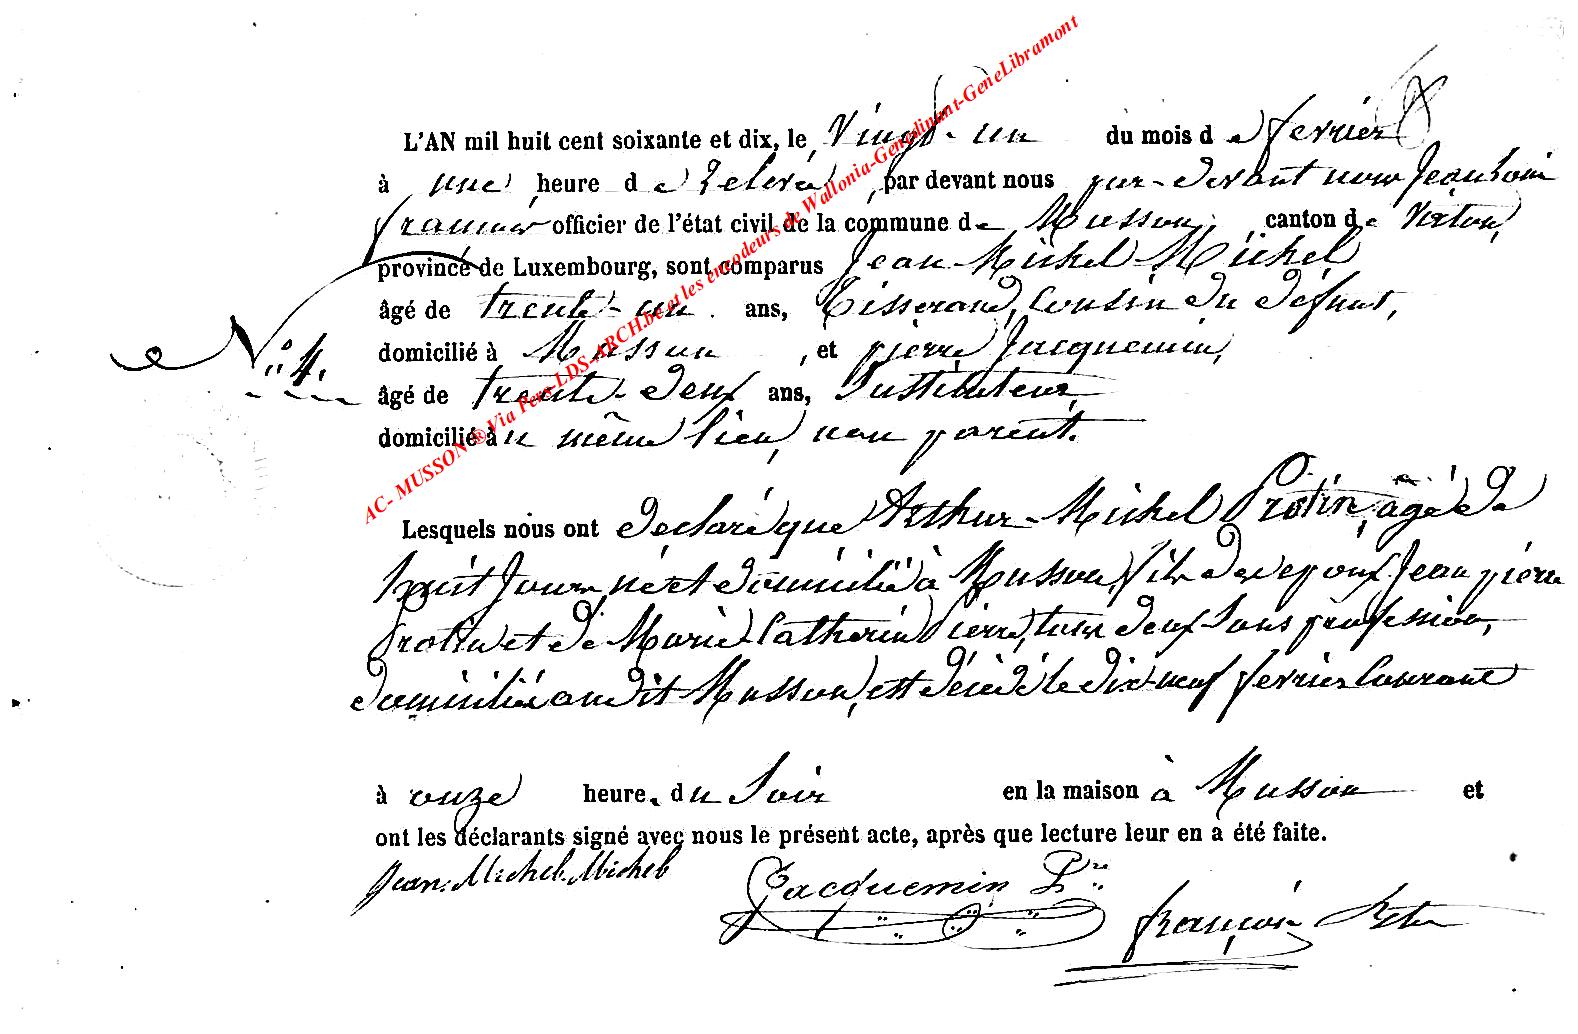 L'AN mil huit cent soixante et dix, le Vingt-un du mois de fevrier
à une heure de relevée par devant nous par-devant nous Jean Louis
françois officier de l'état civil de la commune de Musson, canton de Virton,
province de Luxembourg, sont comparus Jean-Michel Michel
âgé de trente-un ans, Tisserand, Cousin du défunt,
N° 4.
domicilié à Musson, et pierre Jacquemin,
âgé de trente-deux ans, Instituteur,
domicilié au même lieu, non parent.
Lesquels nous ont déclaré que Arthur-Michel Protin, âgé de
huit Jours, né et domicilié à Musson, fils des epoux Jean pierre
Protin et de Marie-Catherine Pierre, tous deux Sans profession,
domiciliés audit Musson, est décédé le dix-neuf fevrier Courant
à onze heures du Soir en la maison à Musson et
ont les déclarants signé avec nous le présent acte, après que lecture leur en a été faite.
Jean-Michel Michel
Jacquemin Pre
françois
AC- MUSSON ® Via Pers-LDS-ARCH.be et les encodeurs de Wallonia-Genedinant-GeneLibramont